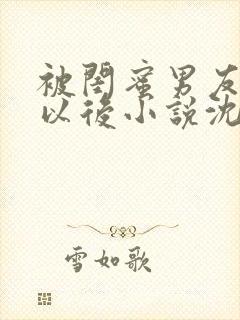 被閨蜜男友
以後小説沈
雪如歌